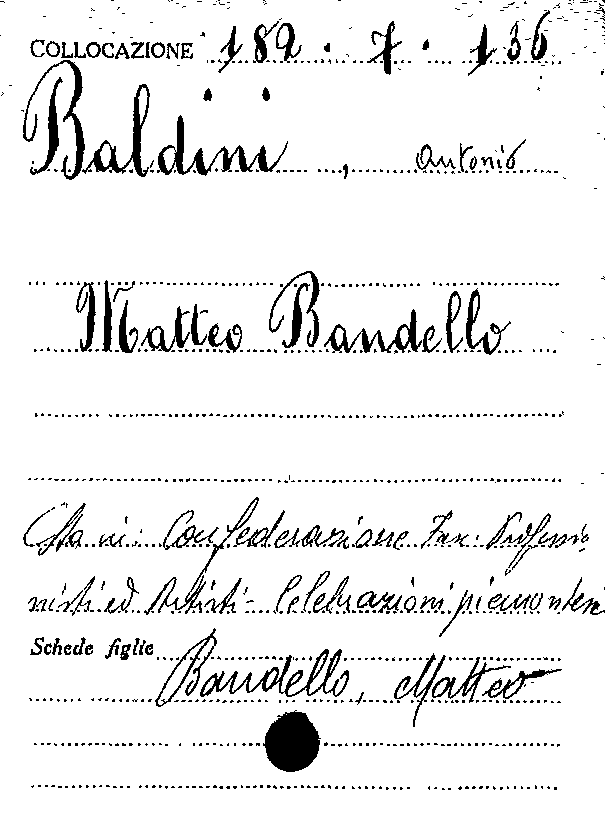 COLLOCAZIONE 182 . 7 . 136
Baldini , Antonio
Matteo Bandello
(Sta in: Confederazione Fax: Professio
nisti ed Artisti - Celebrazioni piemontesi
Schede figlie
Bandello, Matteo